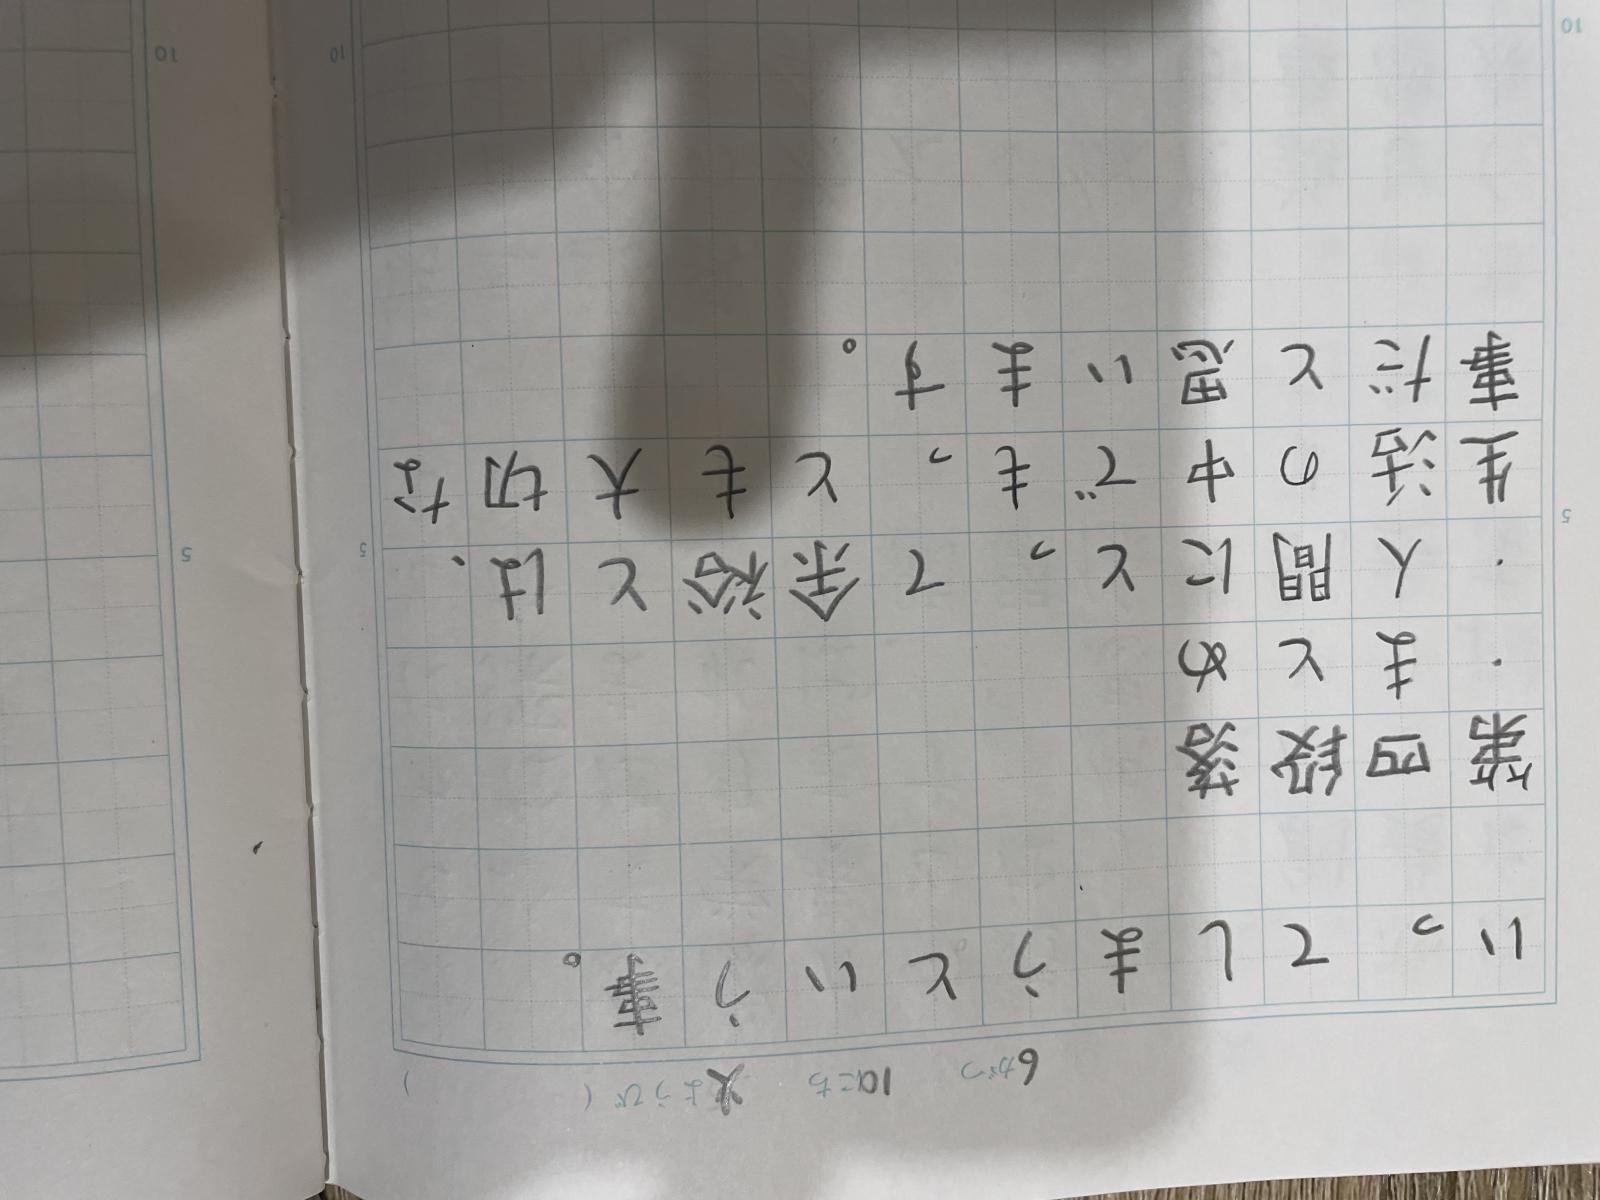 6がつ 10にち 火ようび ( )
いってしまうという事。
第四段落
・まとめ
・人間にとって余裕とは、
5 5 5
生活の中でもっとも大切な
事だと思います。
10 10 10